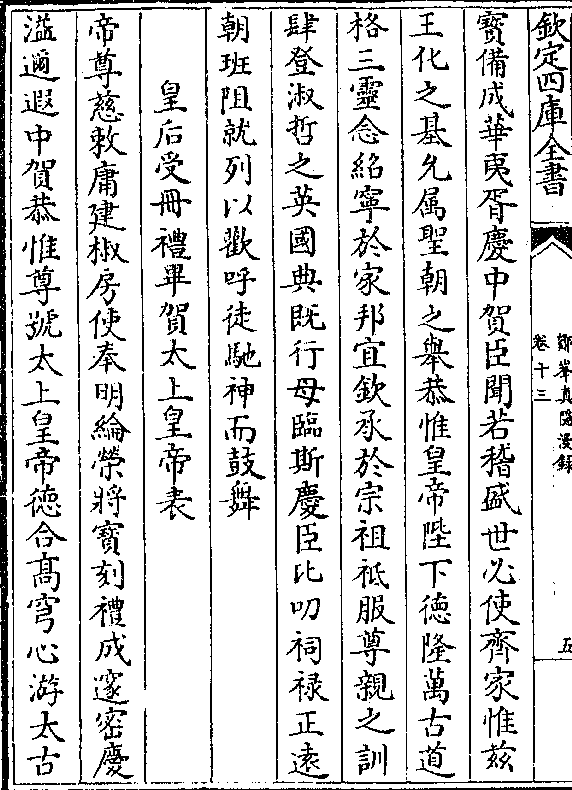 欽定四庫全書
鄮峯真隱漫録
卷十三
五
寳備成華夷胥慶中賀臣聞若稽盛世必使齊家惟兹
王化之基允属聖朝之舉恭惟皇帝陛下徳隆萬古道
格三靈念紹寧於家邦宜欽承於宗祖祗服尊親之訓
肆登淑哲之英國典既行母臨斯慶臣比叨祠禄正逺
朝班阻就列以歡呼徒馳神而鼓舞
皇后受冊禮畢賀太上皇帝表
帝尊慈敕庸建椒房使奉明綸榮將寳刻禮成邃密慶
溢邇遐中賀恭惟尊號太上皇帝徳合髙穹心游太古